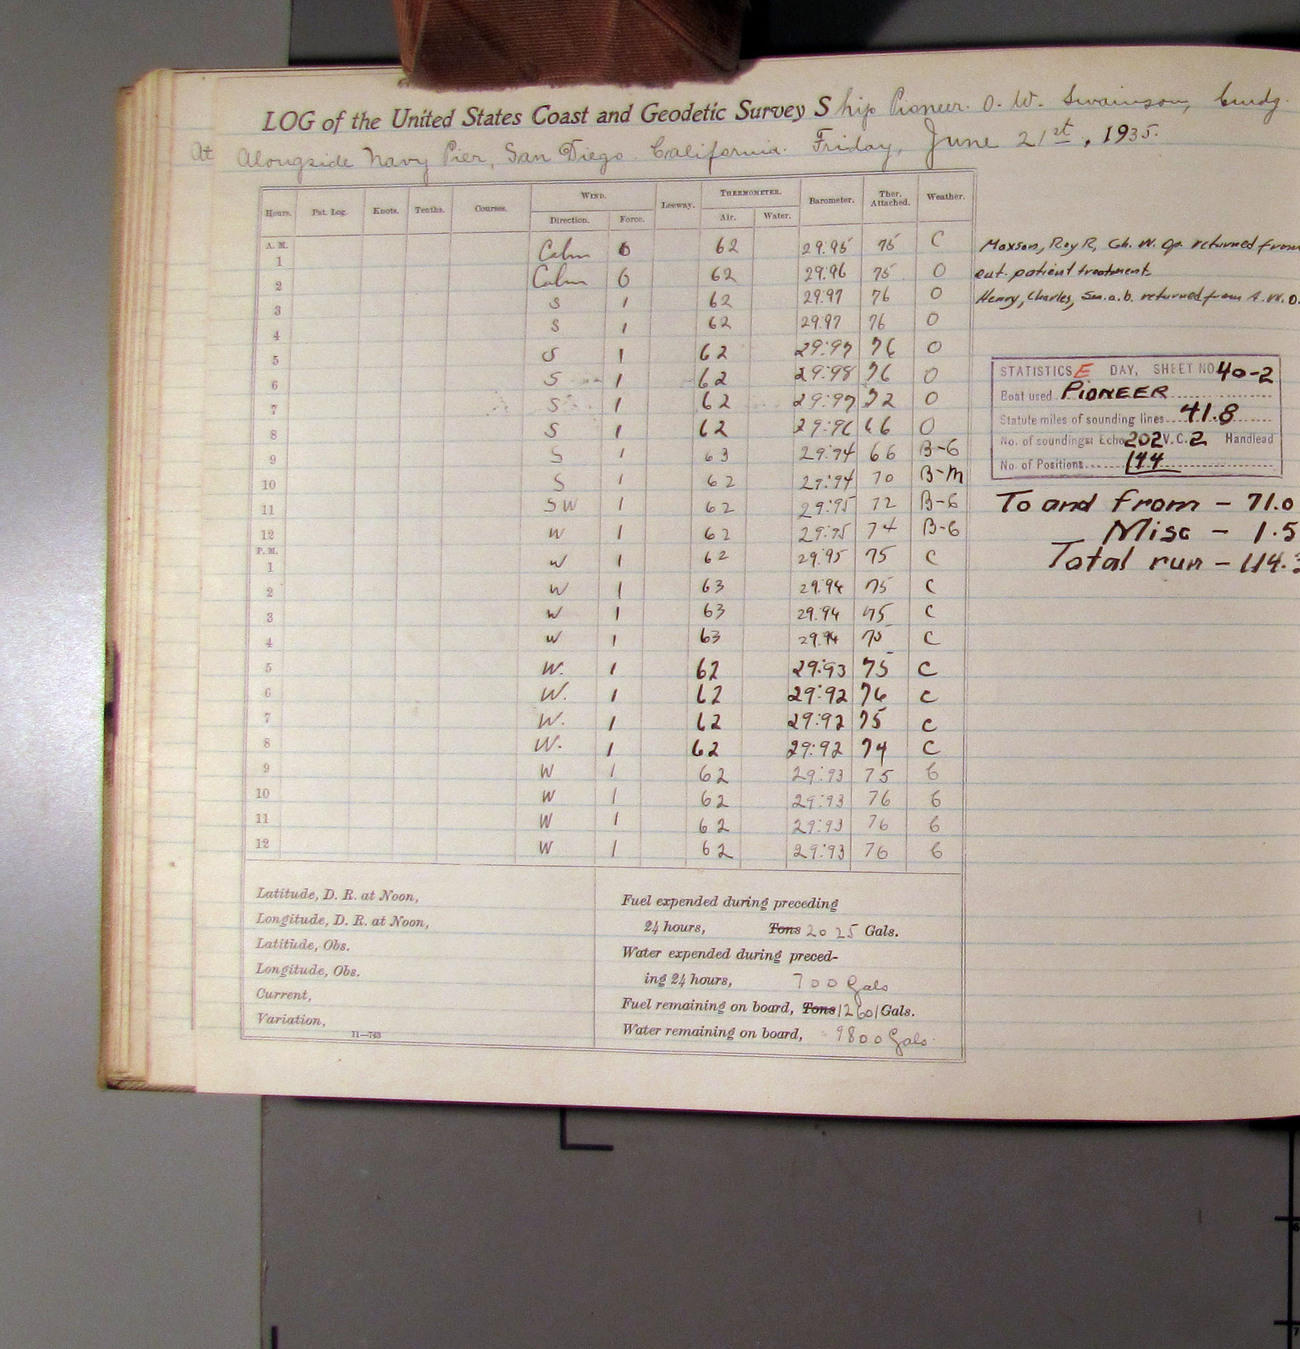 LOG of the United States Coast and Geodetic Survey Ship Pioneer. O. W. Swainson, Comdg.
At
Alongside Navy Pier, San Diego California. Friday, June 21st, 1935.
Hours. Pat. Log. Knots. Tenths. Courses. WIND. Leeway. THERMOMETER. Barometer. Ther. Attached. Weather.
Direction. Force. Air. Water.
A. M.
1 Calm 0 62 29.95 75 C
2 Calm 0 62 29.96 75 O
3 S 1 62 29.97 76 O
4 S 1 62 29.97 76 O
5 S 1 62 29:97 76 O
6 S 1 62 29:98 76 O
7 S 1 62 29:97 72 O
8 S 1 62 29:96 66 O
9 S 1 63 29:94 66 B-C
10 S 1 62 29:94 70 B-M
11 SW 1 62 29:95 72 B-C
12 W 1 62 29:95 74 B-C
P. M.
1 W 1 62 29:95 75 C
2 W 1 63 29.94 75 C
3 W 1 63 29.94 75 C
4 W 1 63 29.94 75 C
5 W. 1 62 29:93 75 C
6 W. 1 62 29:92 76 C
7 W. 1 62 29:92 75 C
8 W. 1 62 29:92 74 C
9 W 1 62 29:93 75 6
10 W 1 62 29:93 76 6
11 W 1 62 29:93 76 6
12 W 1 62 29:93 76 6
Maxson, Roy R, Ch. W. Op. returned from
out patient treatment
Henry, Charles, Sea. a.b. returned from A.W.O.
STATISTICS E DAY, SHEET NO 40-2
Boat used PIONEER
Statute miles of sounding lines 41.8
No. of soundings: Echo 202 V.C. 2 Handlead
No. of Positions 144
To and from - 71.0
Misc - 1.5
Total run - 114.3
Latitude, D. R. at Noon,
Longitude, D. R. at Noon,
Latitude, Obs.
Longitude, Obs.
Current,
Variation,
11—763
Fuel expended during preceding
24 hours, Tons 2025 Gals.
Water expended during preced-
ing 24 hours, 700 Gals
Fuel remaining on board, Tons 12601 Gals.
Water remaining on board, 9800 Gals.